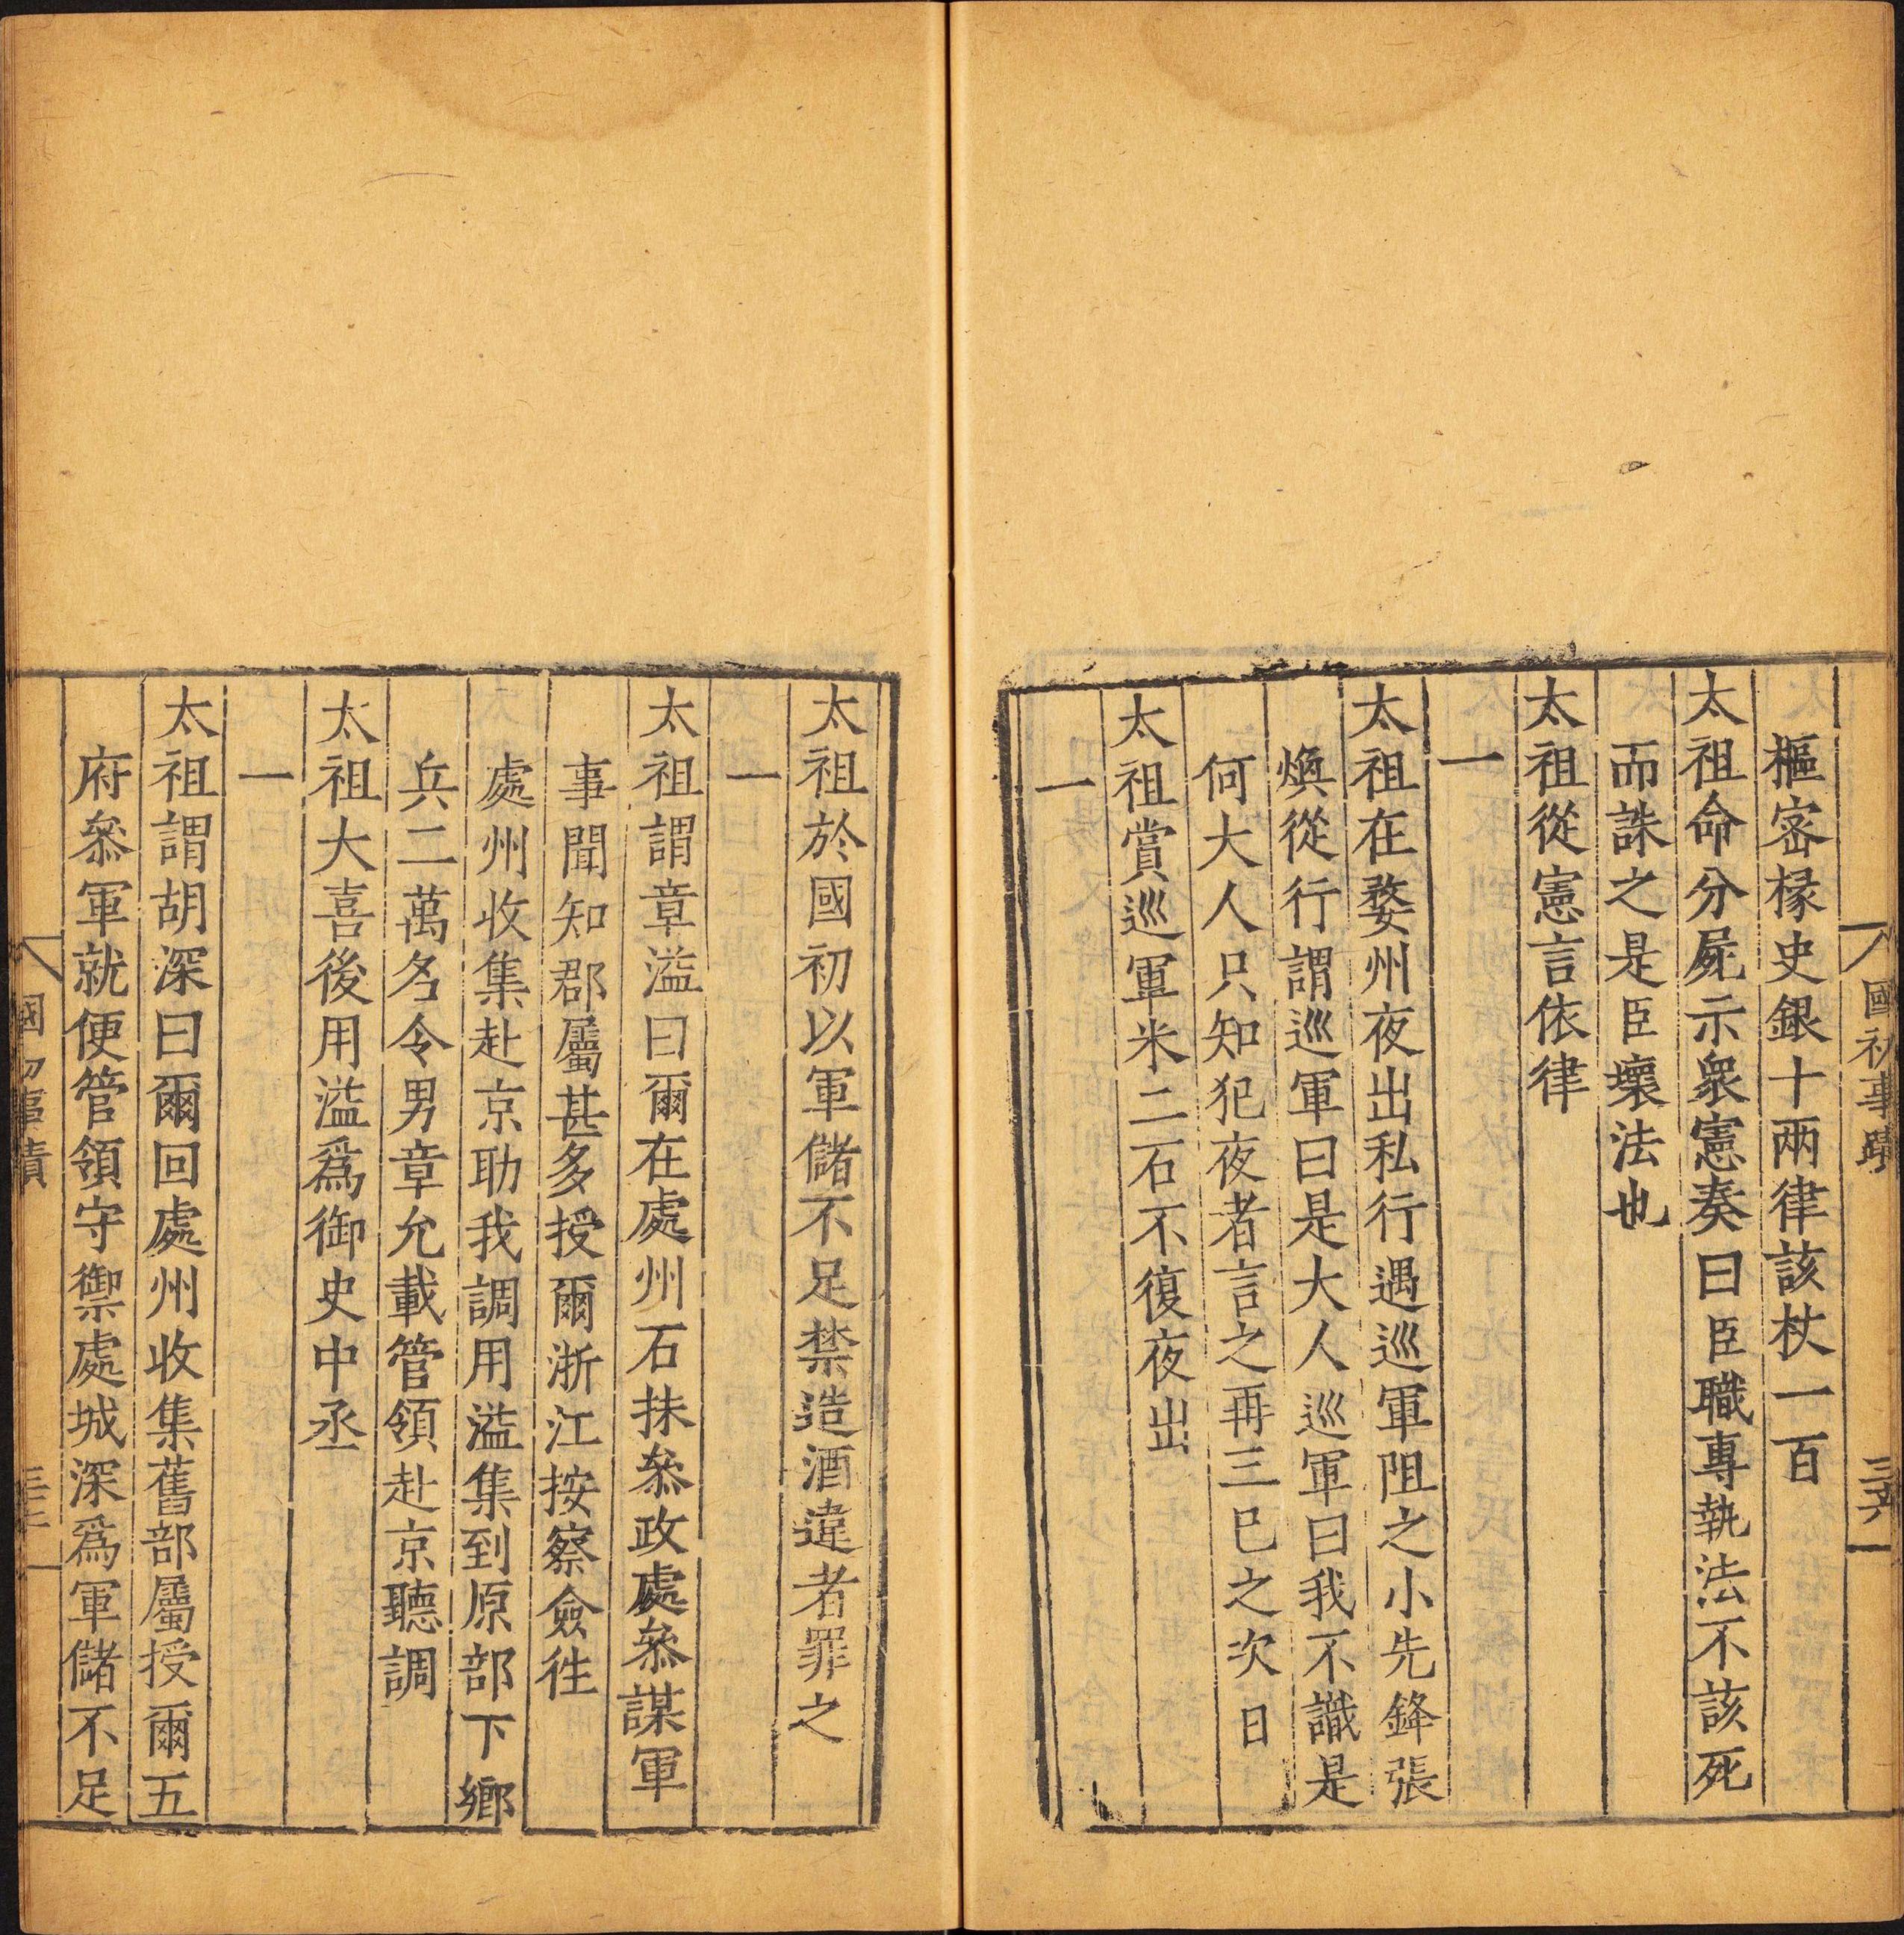 國初事蹟
三六
樞宻椽史銀十兩律該杖一百
太祖命分屍示衆憲奏曰臣職專執法不該死
而誅之是臣壞法也
太祖從憲言依律
一
太祖在婺州夜出私行遇巡軍阻之小先鋒張
煥從行謂巡軍曰是大人巡軍曰我不識是
何大人只知犯夜者言之再三巳之次日
太祖賞巡軍米二石不復夜出
一
太祖於國初以軍儲不足禁造酒違者罪之
一
太祖謂章溢曰爾在處州石抹叅政處叅謀軍
事聞知郡屬甚多授爾浙江按察僉徃
處州收集赴京助我調用溢集到原部下鄉
兵二萬名令男章允載管領赴京聽調
太祖大喜後用溢爲御史中丞
一
太祖謂胡深曰爾回處州收集舊部屬授爾五
府叅軍就便管領守禦處城深爲軍儲不足
國初事蹟